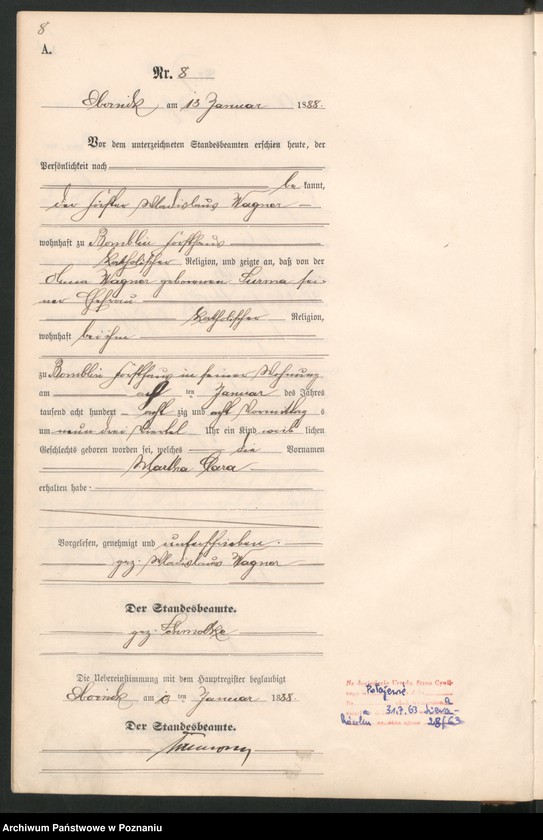 8
A.
Nr. 8
Obornik am 13 Januar 1888.
Vor dem unterzeichneten Standesbeamten erschien heute, der
Persönlichkeit nach
be kannt,
der Förster Wladislaus Wagner
wohnhaft zu Bomblin Forsthaus
katholischer Religion, und zeigte an, daß von der
Anna Wagner geborenen Surma sei-
ner Ehefrau
katholischer Religion,
wohnhaft bei ihm
zu Bomblin Forsthaus in seiner Wohnung
am ten Januar des Jahres
tausend acht hundert acht zig und acht Vormittag s
um neun drei viertel Uhr ein Kind weib lichen
Geschlechts geboren worden sei, welches die Vornamen
Martha Clara
erhalten habe
Vorgelesen, genehmigt und unterschrieben.
gez. Wladislaus Wagner
Der Standesbeamte.
gez.
Die Uebereinstimmung mit dem Hauptregister beglaubigt
Obornik am ten Januar 1888.
Der Standesbeamte.
Urzędu Stanu Cywil-
Połajewo
31.7.63
28/63
Archiwum Państwowe w Poznaniu